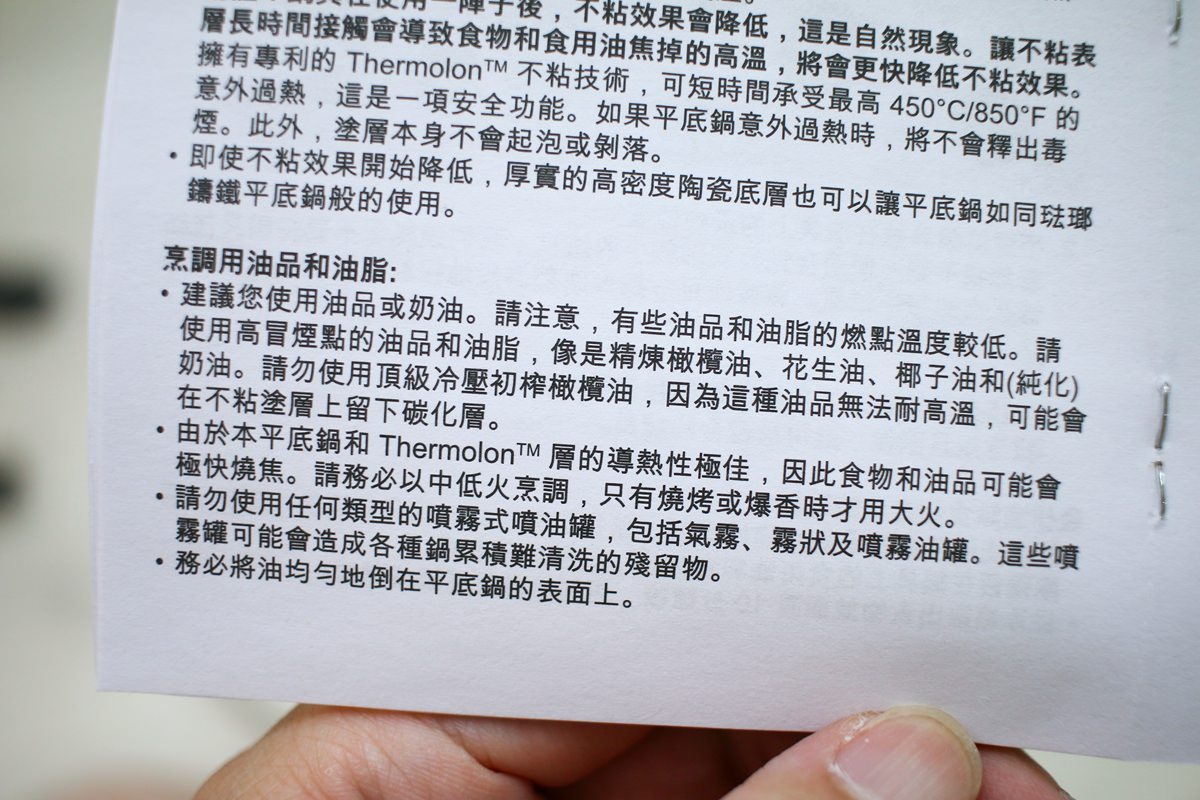 在使用一陣子後，不粘效果會降低，這是自然現象。讓不粘表
層長時間接觸會導致食物和食用油焦掉的高溫，將會更快降低不粘效果。
擁有專利的 Thermolon™ 不粘技術，可短時間承受最高 450°C/850°F 的
意外過熱，這是一項安全功能。如果平底鍋意外過熱時，將不會釋出毒
煙。此外，塗層本身不會起泡或剝落。
• 即使不粘效果開始降低，厚實的高密度陶瓷底層也可以讓平底鍋如同琺瑯
鑄鐵平底鍋般的使用。
烹調用油品和油脂:
• 建議您使用油品或奶油。請注意，有些油品和油脂的燃點溫度較低。請
使用高冒煙點的油品和油脂，像是精煉橄欖油、花生油、椰子油和(純化)
奶油。請勿使用頂級冷壓初榨橄欖油，因為這種油品無法耐高溫，可能會
在不粘塗層上留下碳化層。
• 由於本平底鍋和 Thermolon™ 層的導熱性極佳，因此食物和油品可能會
極快燒焦。請務必以中低火烹調，只有燒烤或爆香時才用大火。
• 請勿使用任何類型的噴霧式噴油罐，包括氣霧、霧狀及噴霧油罐。這些噴
霧罐可能會造成各種鍋累積難清洗的殘留物。
• 務必將油均勻地倒在平底鍋的表面上。